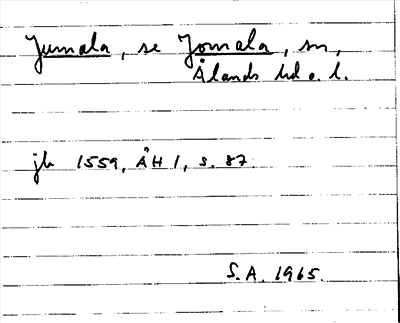 Jumala, se Jomala, sn,
Ålands hd o. l.
jb 1559, ÅH 1, s. 87.
S.A. 1965.